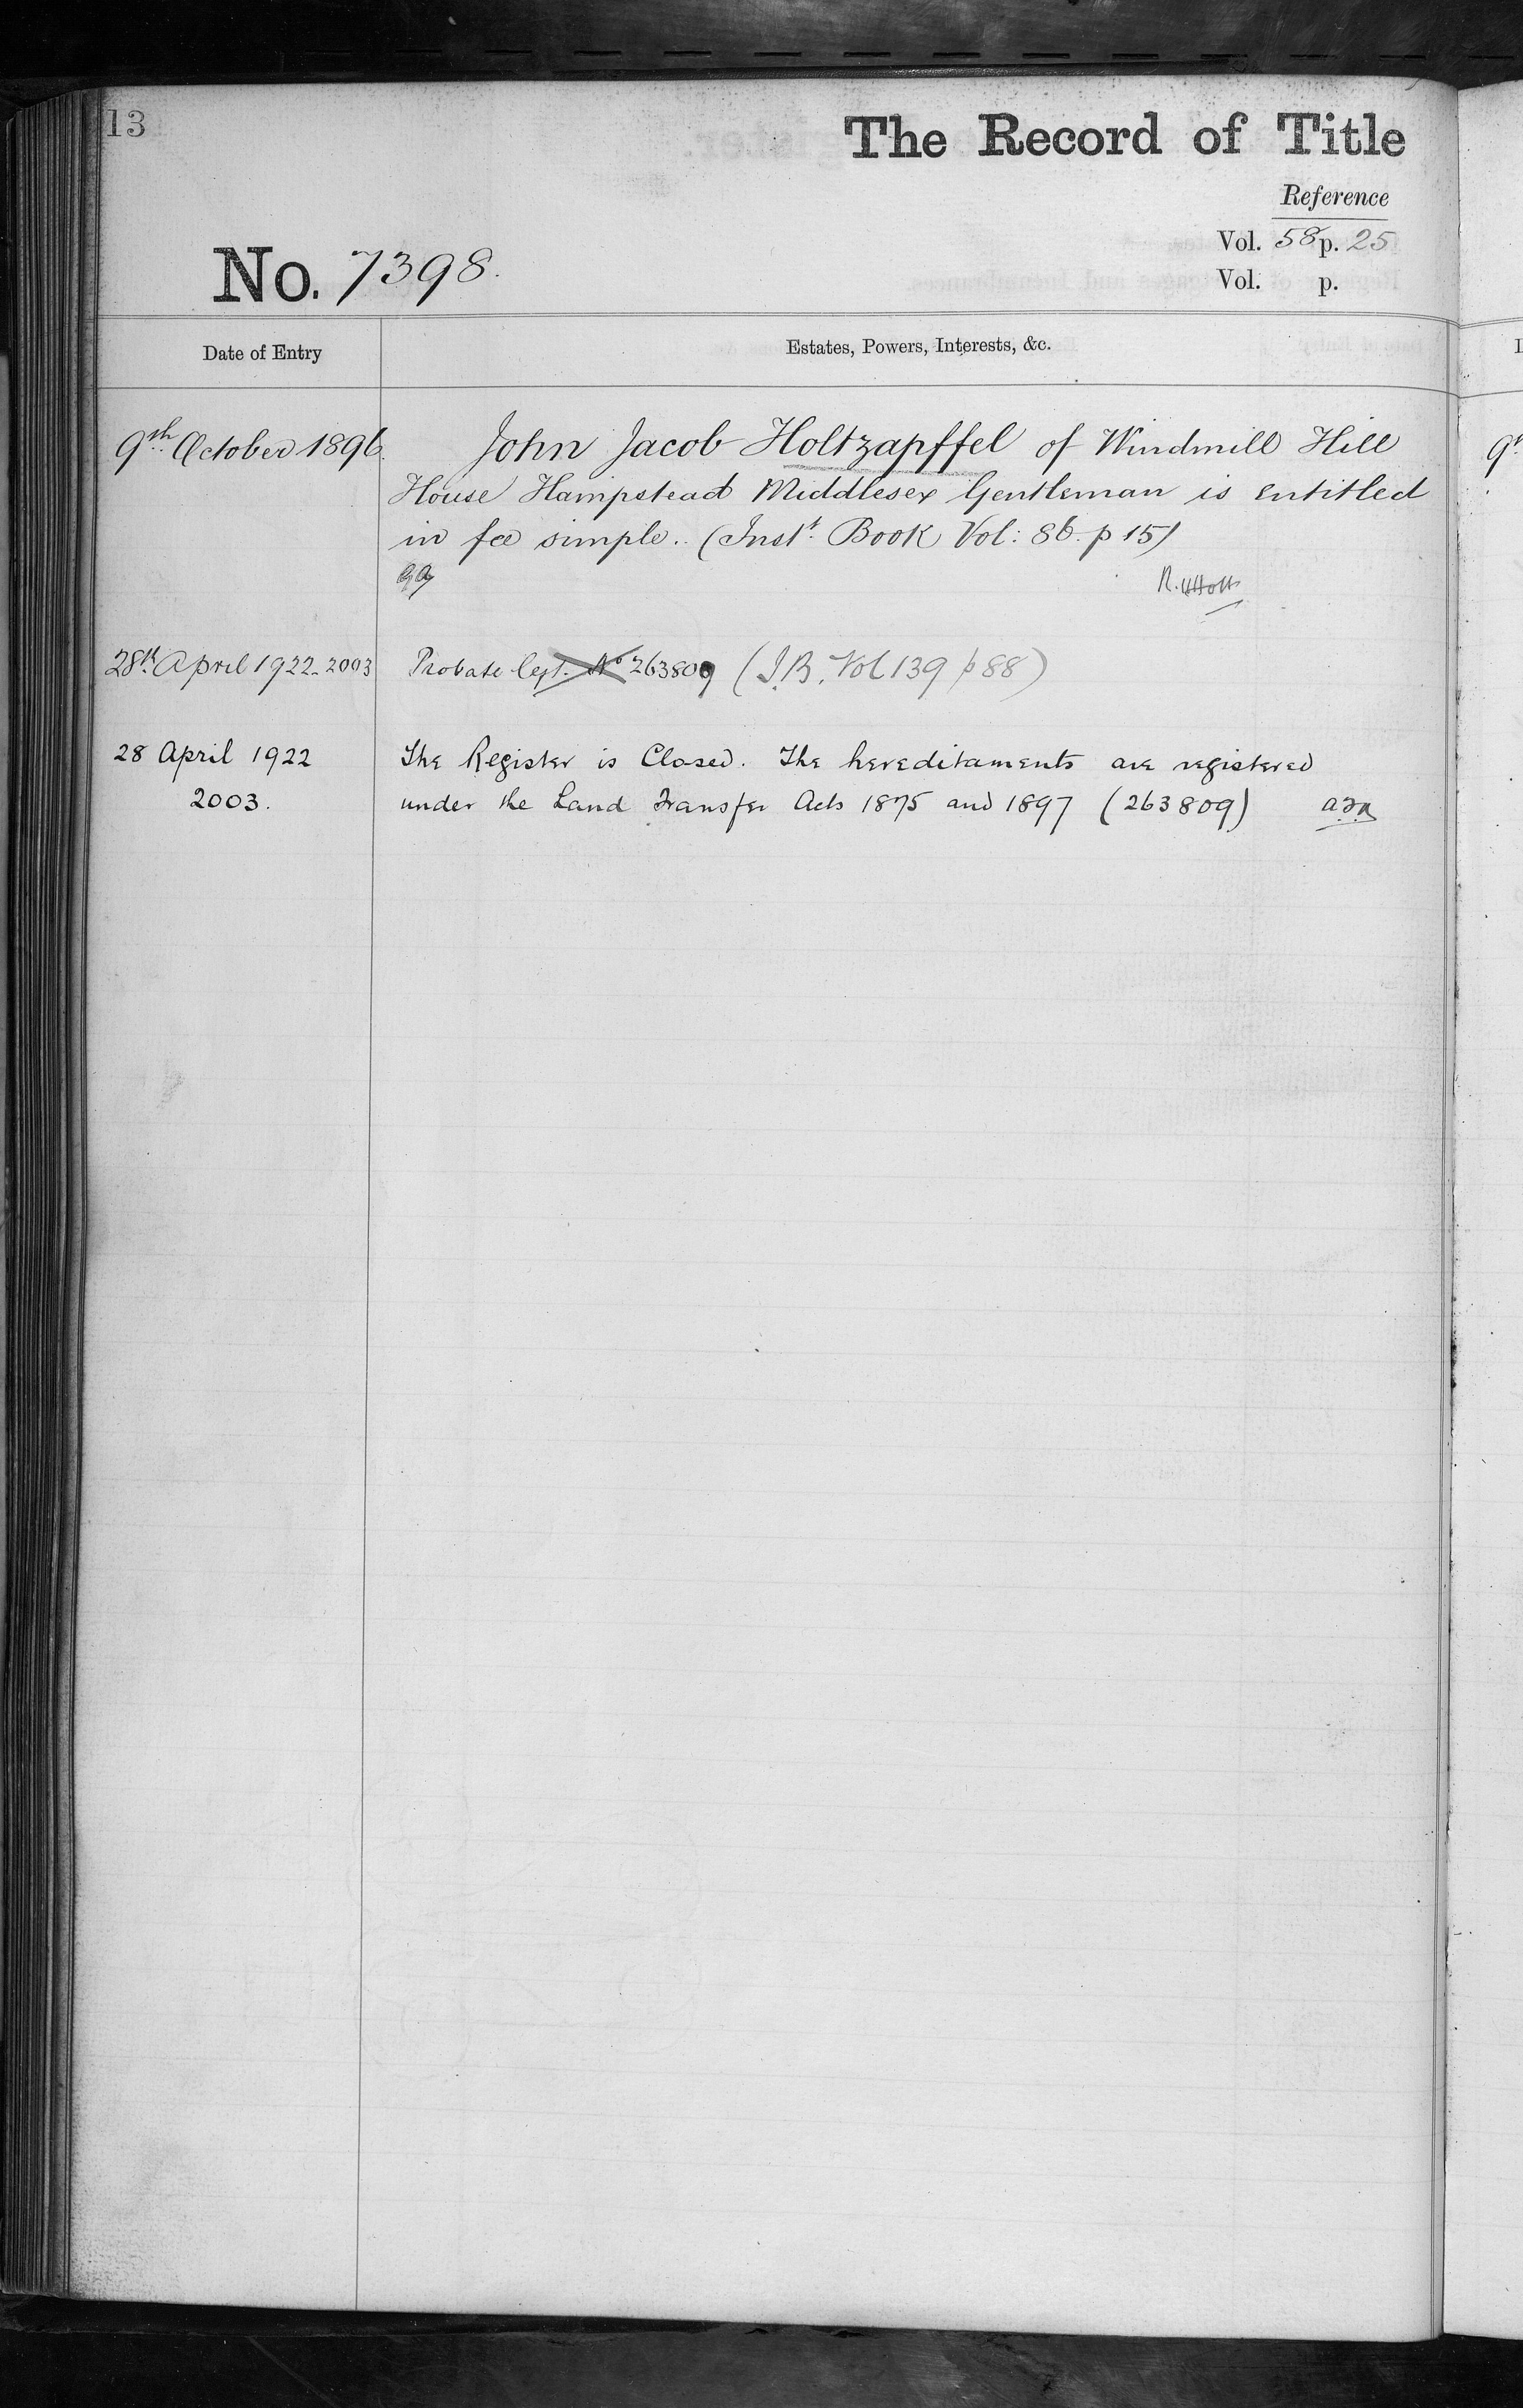 13
The Record of Title
Reference
Vol. 58 p. 25
Vol. p.
No. 7398.
Date of Entry
Estates, Powers, Interests, &c.
9th October 1896.
John Jacob Holtzapffel of Windmill Hill
House Hampstead Middlesex Gentleman is entitled
in fee simple. (Inst. Book Vol: 86. p 15)
R.H.Holt
28th April 1922-2003
Probate No 263809 (I.B. Vol 139 p 88)
28 April 1922
2003.
The Register is Closed. The hereditaments are registered
under the Land Transfer Acts 1875 and 1897 (263809)
9th